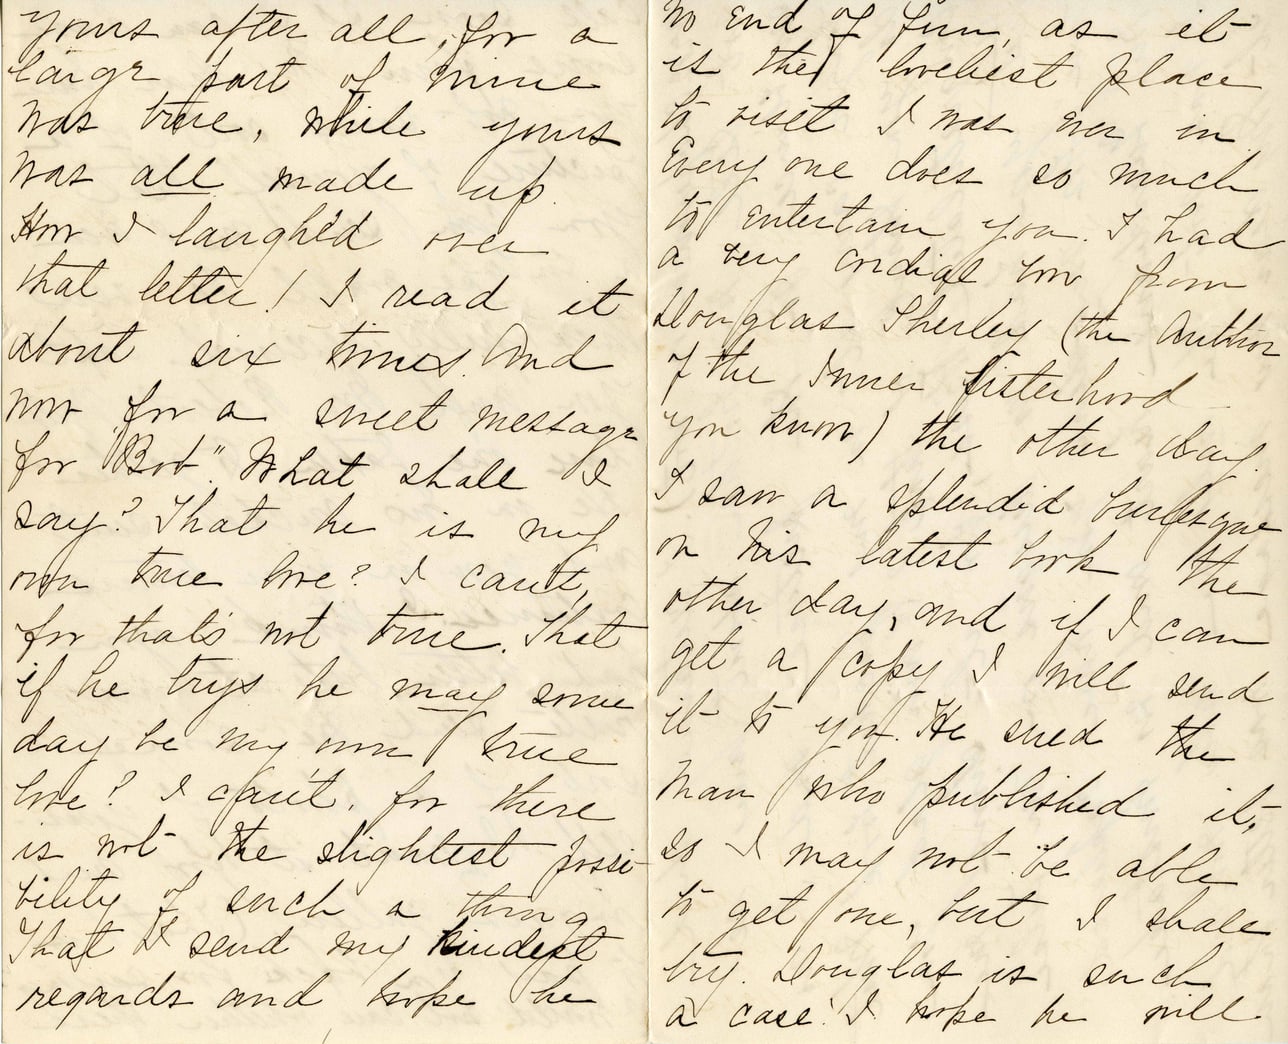 yours after all, for a
large part of mine
was true, while yours
was all made up.
How I laugh'd over
that letter! I read it
about six times. And
now for a sweet message
for "Bob". What shall I
say? That he is my
own true love? I can't,
for that's not true. That
if he trys he may some
day be my own true
love? I can't, for there
is not the slightest possi-
bility of such a thing
That I send my kindest
regards and hope he
no end of fun, as it
is the loveliest place
to visit I was ever in.
Every one does so much
to entertain you. I had
a very cordial bow from
Douglas Sherley (the author
of the Inner Sisterhood
you know) the other day.
I saw a splendid burlesque
on his latest book the
other day, and if I can
get a copy I will send
it to you. He sued the
man who published it,
so I may not be able
to get one, but I shall
try. Douglas is such
a case! I hope he will